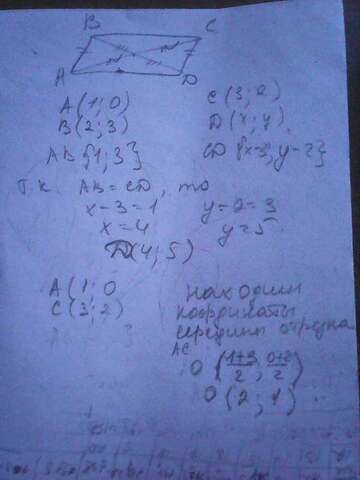 B C
A D
A(1;0) C(3;2)
B(2;3) D(x;y)
AB{1;3} CD{x-3;y-2}
Т.к. AB=CD, то
x-3=1 y-2=3
x=4 y=5
D(4;5)
A(1;0
C(3;2)
находим
координаты
середины отрезка
AC
O(1+3/2; 0+2/2)
O(2;1)